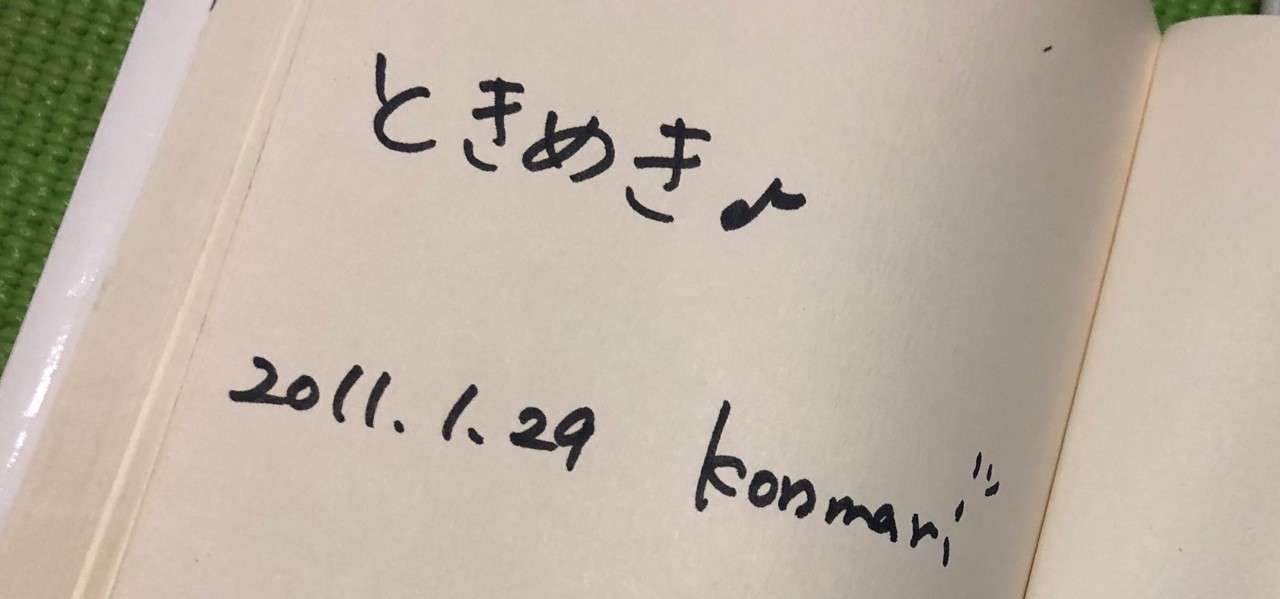 ときめき♪
2011.1.29 konmari